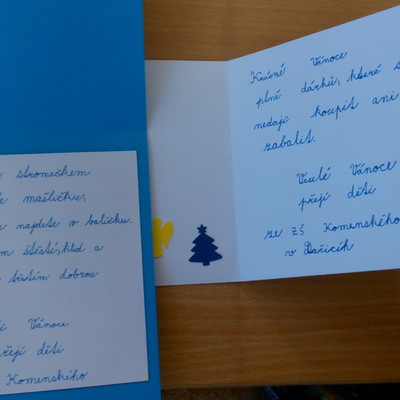 stromečkem
mašličku,
najdete v balíčku.
štěstí, klid a
břeším dobrou
Vánoce
přejí děti
Komenského
Krásné Vánoce
plné dárků, které s
nedají koupit ani
zabalit.
Veselé Vánoce
přejí děti
ze ZŠ Komenského
v Dačicích